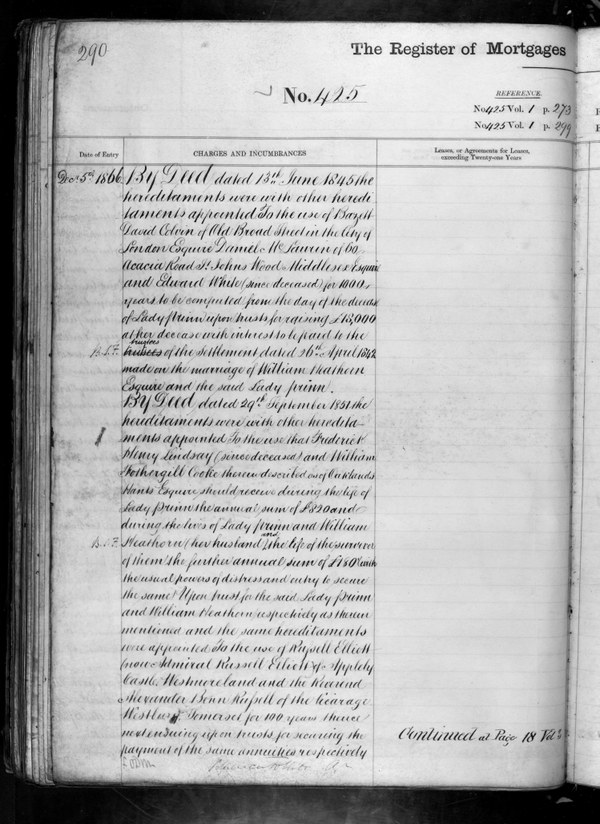 290
The Register of Mortgages
No. 425
REFERENCE.
No 425 Vol. 1 p. 273
No 425 Vol. 1 p. 299
Date of Entry
CHARGES AND INCUMBRANCES
Leases, or Agreements for Leases,
exceeding Twenty-one Years
Decr 5th 1866 By Deed dated 13th June 1845 the
hereditaments were with other heredi
taments appointed To the use of Bazett
David Colvin of Old Broad Street in the City of
London Esquire Daniel McLauren of 60
Acacia Road St Johns Wood Middlesex Esquire
and Edward White (since deceased) for 1000
years to be computed from the day of the decease
of Lady Prinn upon trusts for raising £13,000
at her decease with interest to be paid to the
trustees
B. I. F. trustees of the Settlement dated 26th April 1842
made on the marriage of William Heathorn
Esquire and the said Lady Prinn.
By Deed dated 29th September 1851 the
hereditaments were with other heredita-
ments appointed To the use that Frederick
Henry Lindsay (since deceased) and William
Fothergill Cooke therein described as of Oaklands
Hants Esquire should receive during the life of
Lady Prinn the annual sum of £820 and
during the lives of Lady Prinn and William
and
B. I. F. Heathorn (her husband) the life of the survivor
of them the further annual sum of £180 with
the usual powers of distress and entry to secure
the same Upon trust for the said Lady Prinn
and William Heathorn respectively as therein
mentioned and the same hereditaments
were appointed To the use of Russell Elliott
(now Admiral Russell Elliott) of Appleby
Castle Westmoreland and the Reverend
Alexander Benn Russell of the Vicarage
Westbury Somerset for 100 years thence
next ensuing upon trusts for securing the
payment of the same annuities respectively
Continued at Page 18 Vol 2